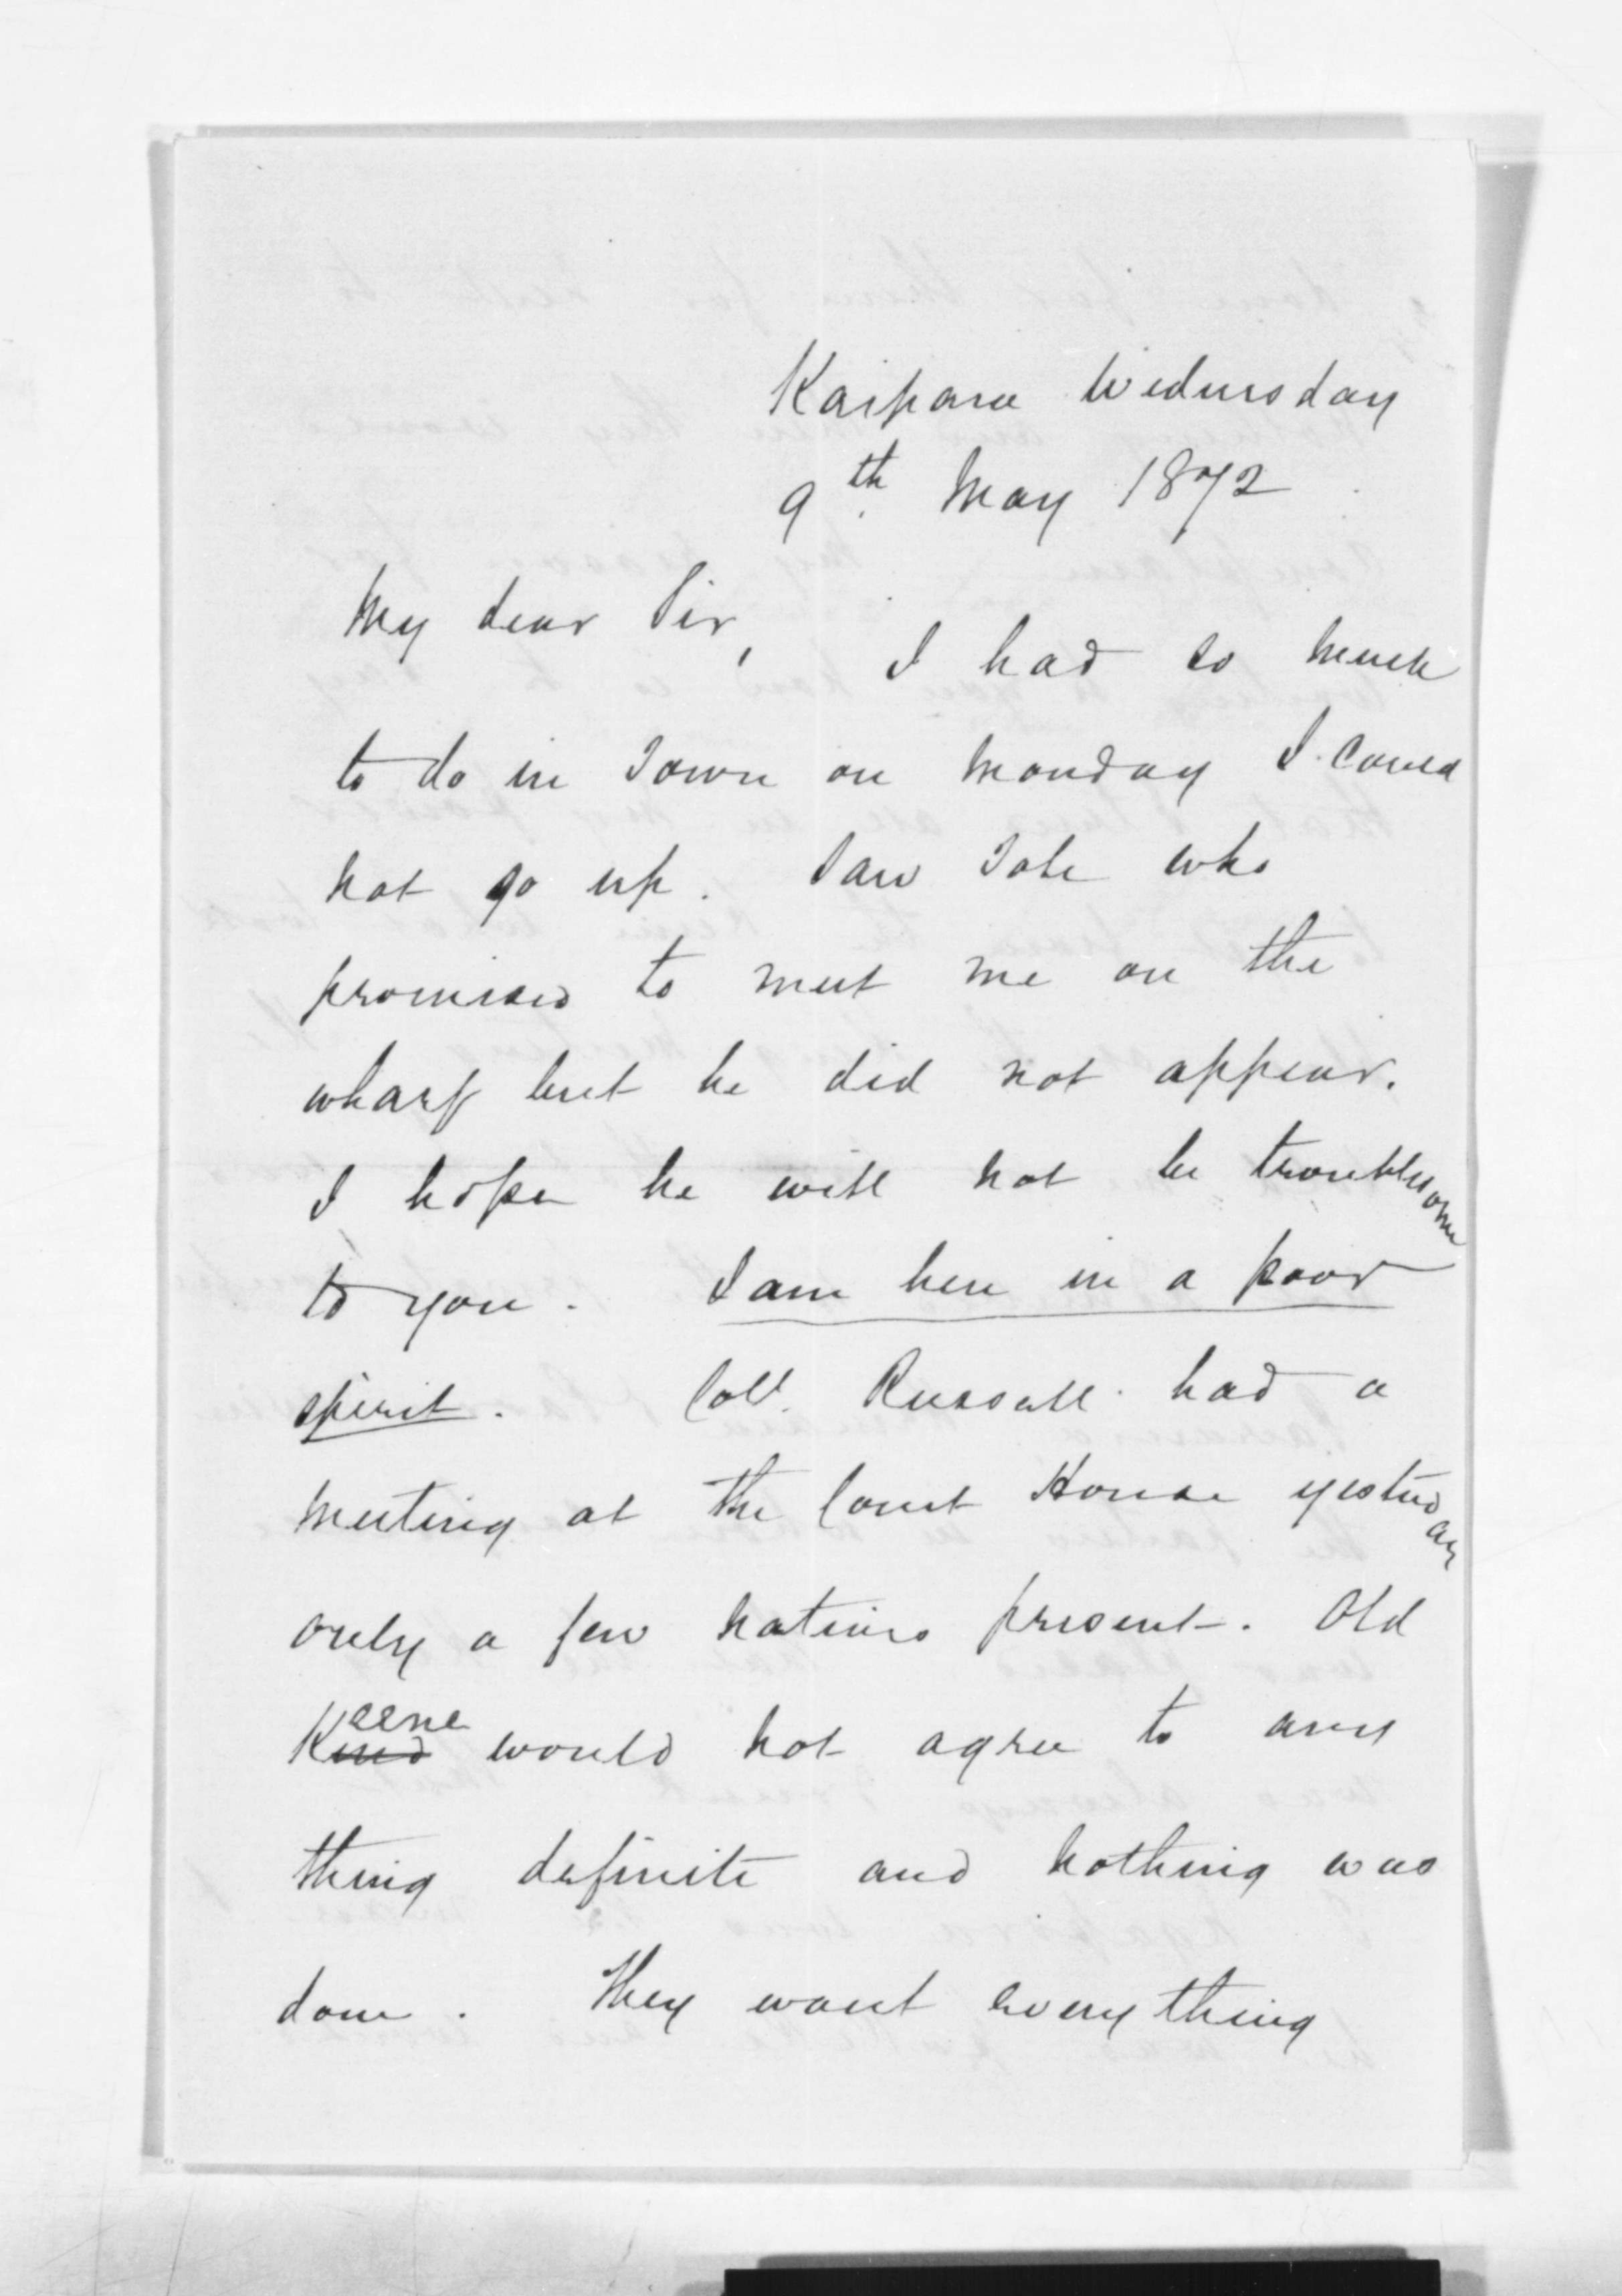 Kaipara Wednesday
9th May 1872
My dear Sir,
I had so much
to do in Town on Monday I could
not go up. Saw Tole who
promised to meet me on the
wharf but he did not appear.
I hope he will not be troublesome
to you. I am here in a poor
spirit. Coll. Russell had a
meeting at the Court House yesterday
only a few natives present. Old
Keene would not agree to any
thing definite and nothing was
done. They want every thing